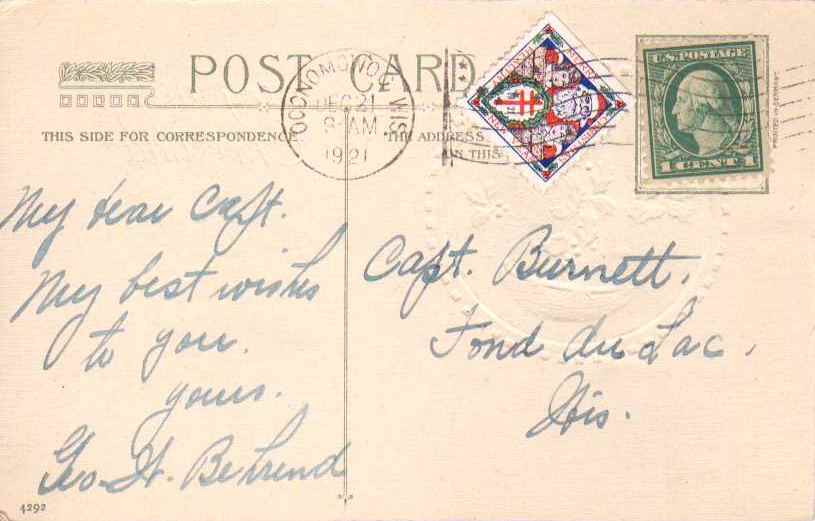 POST CARD
OCONOMOWOC, WIS.
DEC 21
9 AM
1921
U.S. POSTAGE
1 CENT 1
PRINTED IN GERMANY
THIS SIDE FOR CORRESPONDENCE.
THE ADDRESS
ON THIS
My dear Capt.
My best wishes
to you.
yours.
Geo. H. Behrend
Capt. Burnett,
Fond du Lac,
Wis.
4292